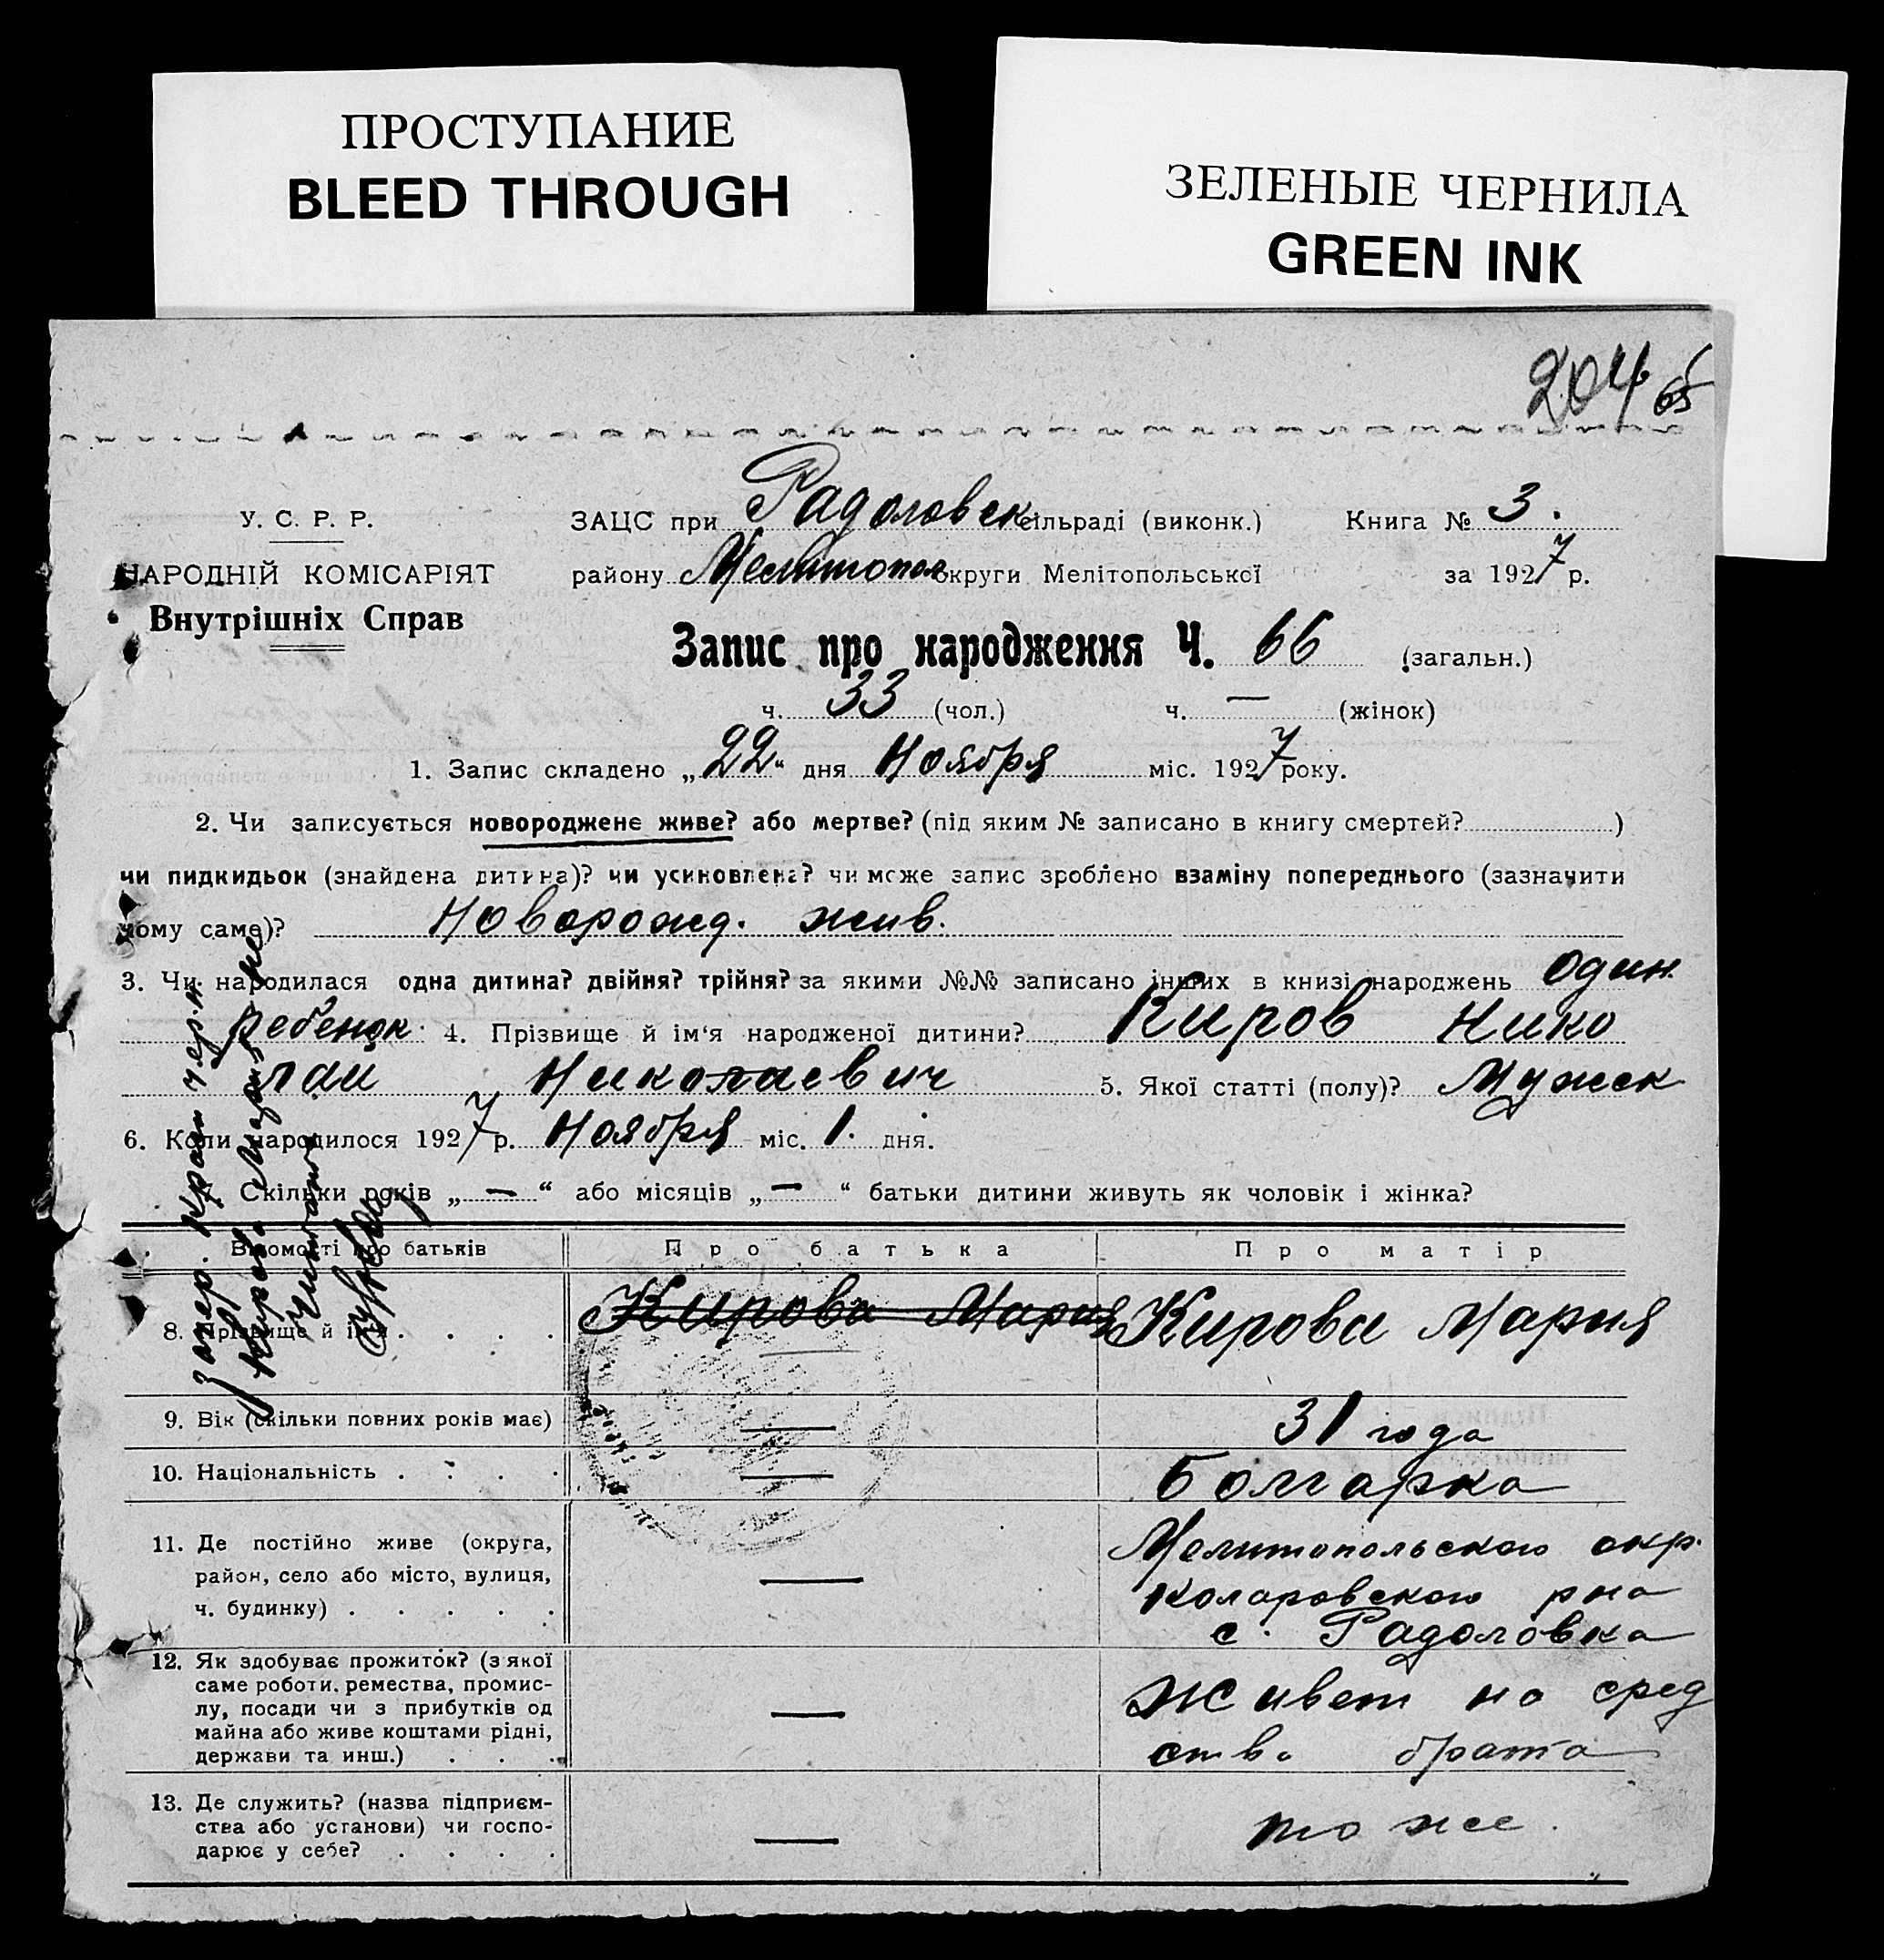 ПРОСТУПАНИЕ
BLEED THROUGH
ЗЕЛЕНЫЕ ЧЕРНИЛА
GREEN INK
204 65
У. С. Р. Р.
НАРОДНІЙ КОМІСАРІЯТ
Внутрішніх Справ
ЗАЦС при Радоловск сільраді (виконк.) Книга № 3.
району Мелитопол округи Мелітопольської за 1927 р.
Запис про народження Ч. 66 (загальн.)
ч. 33 (чол.) ч. — (жінок)
1. Запис складено „22“ дня Ноября міс. 1927 року.
2. Чи записується новороджене живе? або мертве? (під яким № записано в книгу смертей? )
чи пидкидьок (знайдена дитина)? чи усиновлена? чи може запис зроблено взаміну попереднього (зазначити
чому саме)? Новорожд. жив.
3. Чи народилася одна дитина? двійня? трійня? за якими №№ записано інших в книзі народжень один
ребенок. 4. Прізвище й ім'я народженої дитини? Киров Нико
лай Николаевич 5. Якої статті (полу)? Мужск
6. Коли народилося 1927 р. Ноября міс. 1. дня.
7. Скільки років „—“ або місяців „—“ батьки дитини живуть як чоловік і жінка?
Відомості про батьків Про батька Про матір
8. Прізвище й ім'я . . . . Кирова Мария Кирова Мария
9. Вік (скільки повних років має) — 31 года
10. Національність . . . . — Болгарка
11. Де постійно живе (округа,
район, село або місто, вулиця,
ч. будинку) . . . . . —
Мелитопольского окр.
Коларовского р на
с. Радоловка
12. Як здобуває прожиток? (з якої
саме роботи, ремества, промис-
лу, посади чи з прибутків од
майна або живе коштами рідні,
держави та инш.) . . . —
Живет на сред
ства брата
13. Де служить? (назва підприєм-
ства або установи) чи госпо-
дарює у себе? . . . . —
то же.
Кирова Мария не